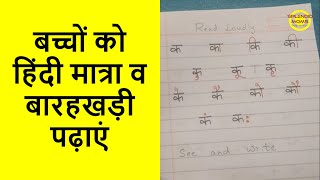 बच्चों को
हिंदी मात्रा व
बारहखड़ी
पढ़ाएं
SPLENDID
MOMS
Read Loudly
क का कि की
कु कू कृ
के कै को कौ
कं कः
See and write